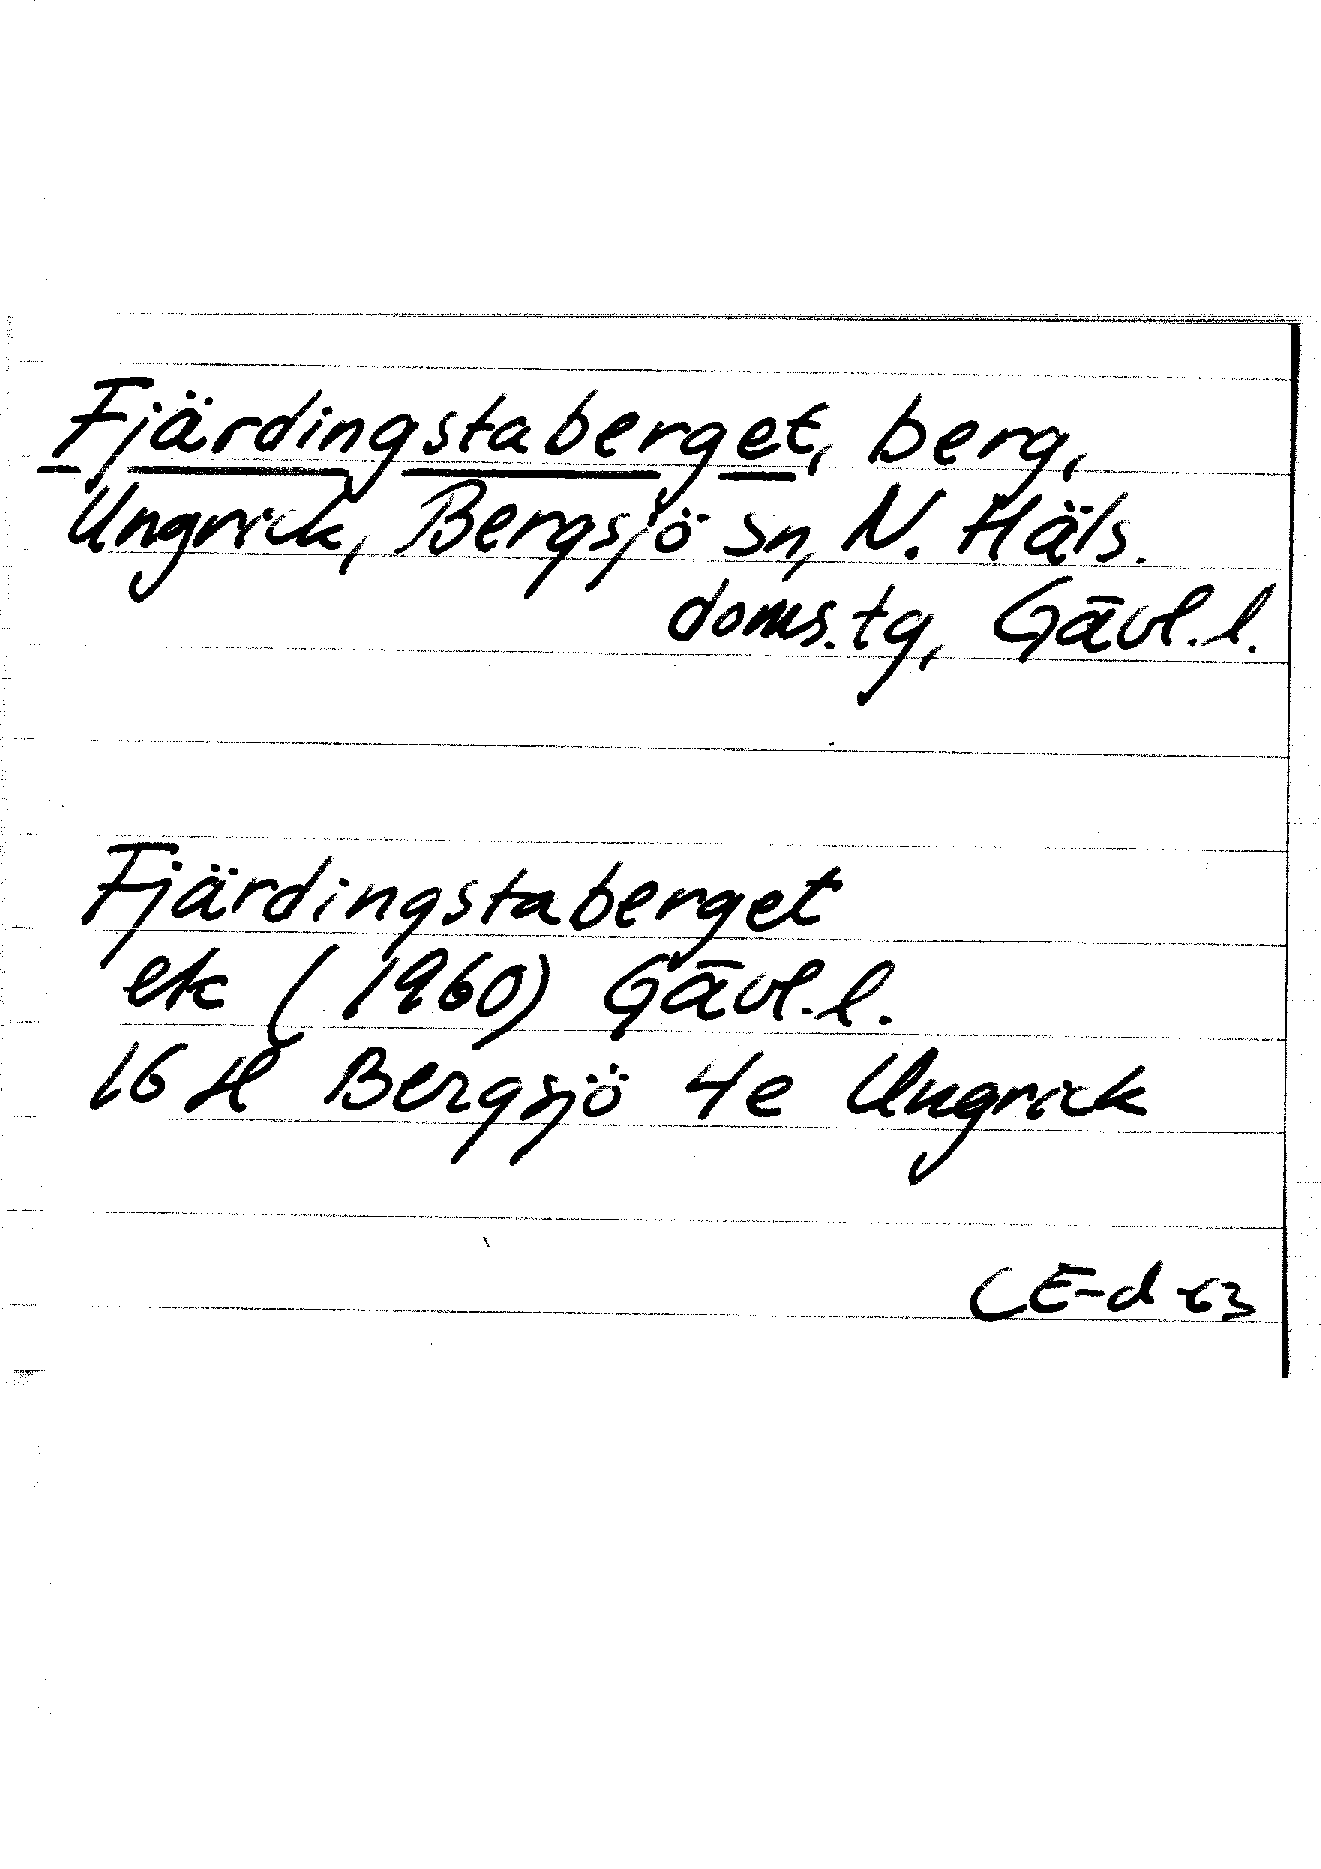 Fjärdingstaberget, berg,
Ungrick, Bergsjö sn, N. Häls.
doms.tg, Gävl.l.
Fjärdingstaberget
ek (1960) Gävl.l.
16 H Bergsjö 4e Ungrick
CE-d -63